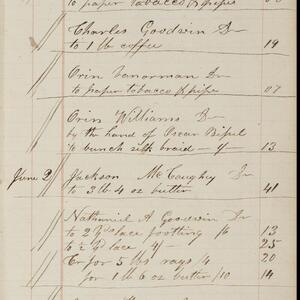 to paper tobacco & pipes
Charles Goodwin Dr
to 1 lb coffee 19
Orin Vanorman Dr
to paper tobacco & pipe 07
Orin Williams Dr
by the hand of Oscar Bissel
½ bunch silk braid 13
June 2 Jackson McCaughey Dr
to 3 lb 4 oz butter 41
Nathaniel A Goodwin Dr
to 2 yds lace footting /6 13
to 2 yd lace 25
Cr for 5 lbs rags /4 20
for 1 lb 6 oz butter /10 14